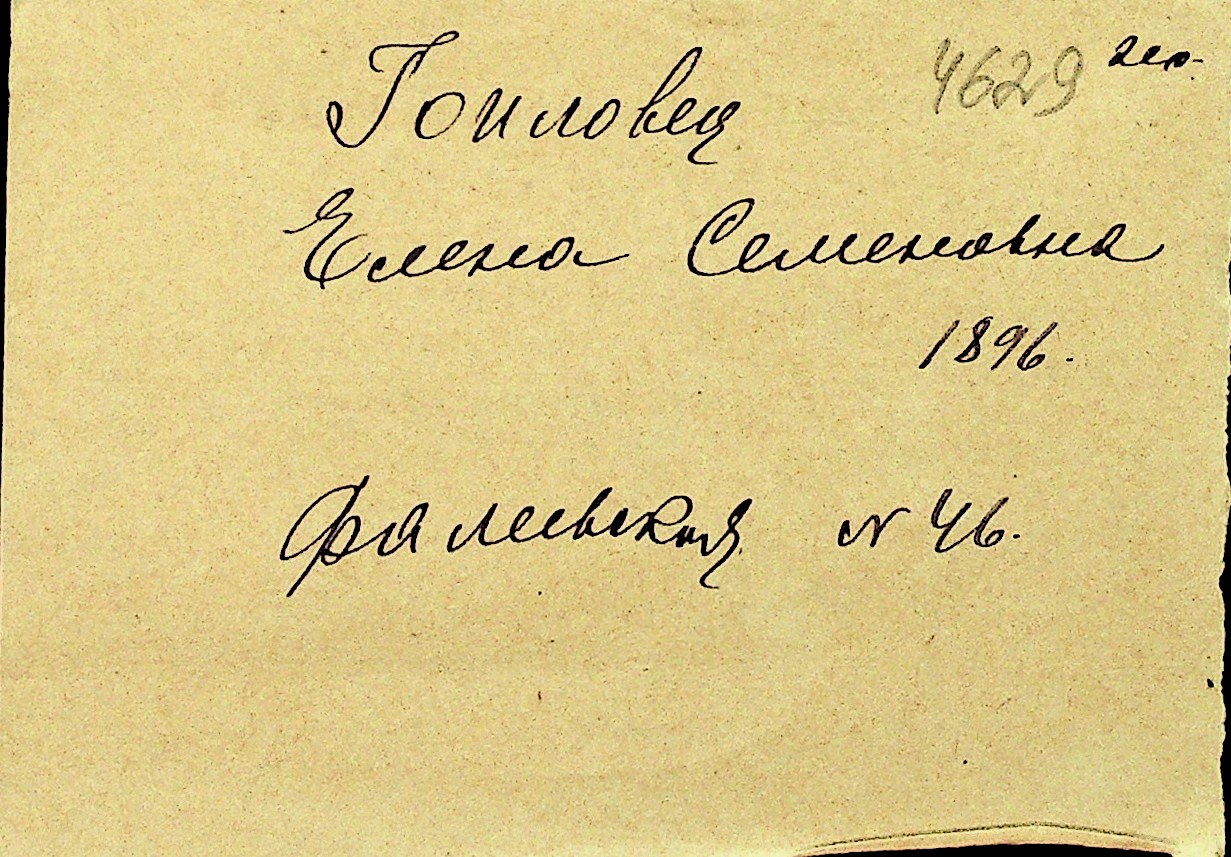 Гопловец 4629
Елена Семеновна
1896.
Фалеевская № 46.